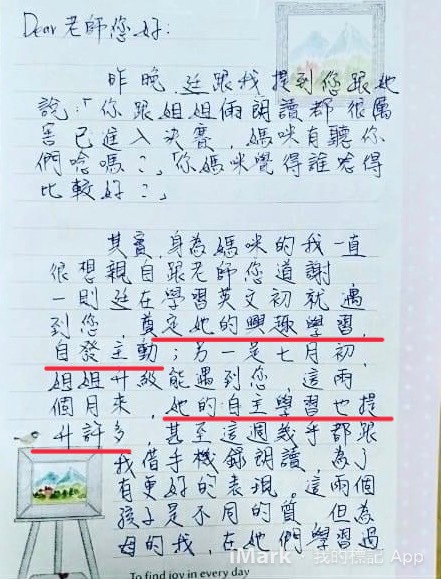 Dear 老師您好:
昨晚,廷跟我提到您跟她
說:「你跟姐姐倆朗讀都很厲
害已進入決賽,媽咪有聽你
們唸嗎?」「你媽咪覺得誰唸得
比較好?」
其實,身為媽咪的我一直
很想親自跟老師您道謝
一則廷在學習英文初就遇
到您,奠定她的興趣學習,
自發主動;另一是七月初,
姐姐升級能遇到您,這兩
個月來,她的自主學習也提
升許多,甚至這週幾乎都跟
我借手機錄朗讀,為了
有更好的表現,這兩個
孩子是不同的質,但為
母的我,在她們學習過
iMark · 我的標記 App
To find joy in every day